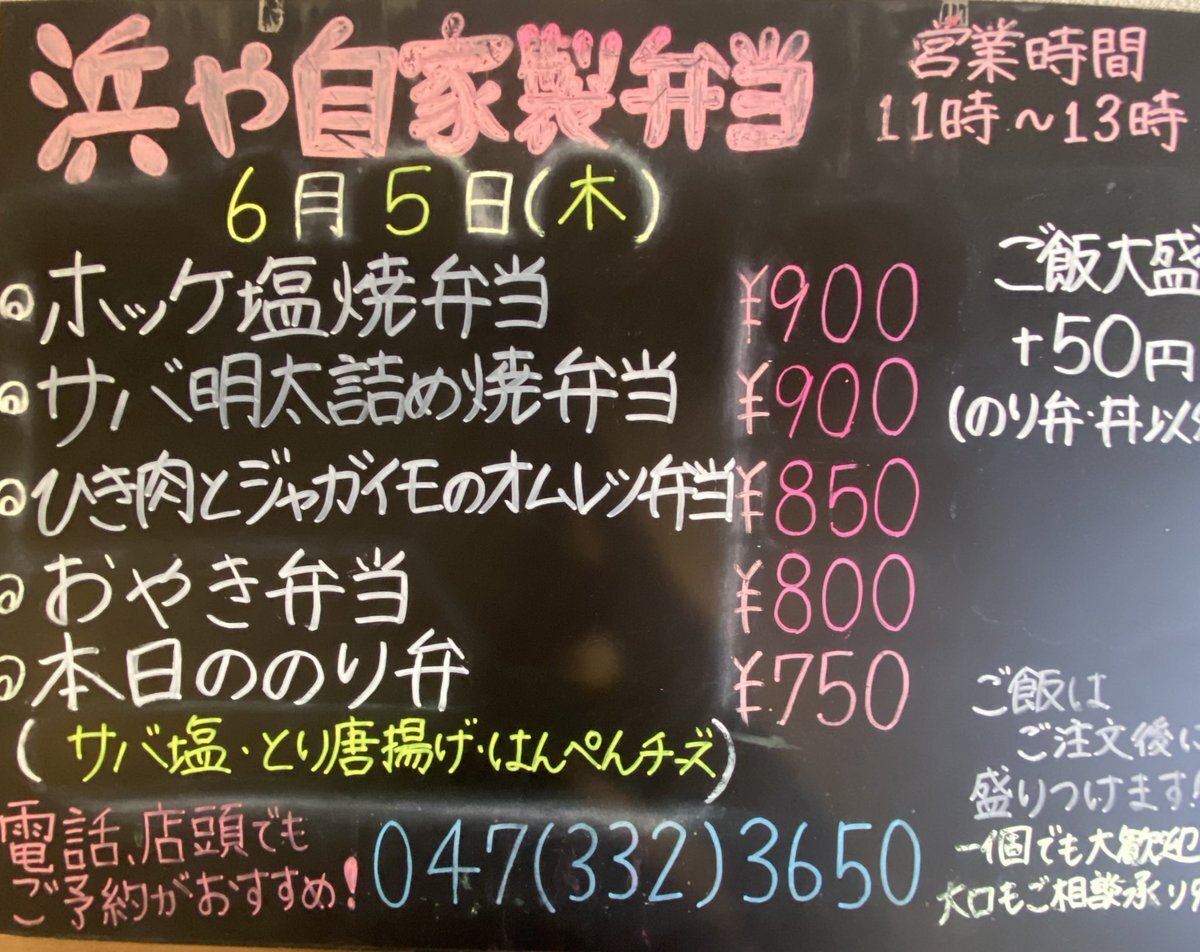 浜や自家製弁当
営業時間
11時～13時
6月5日(木)
ホッケ塩焼弁当 ¥900
サバ明太詰め焼弁当 ¥900
ひき肉とジャガイモのオムレツ弁当 ¥850
おやき弁当 ¥800
本日ののり弁 ¥750
(サバ塩・とり唐揚げ・はんぺんチーズ)
ご飯大盛
+50円
(のり弁・丼以
ご飯は
ご注文後に
盛りつけます!
一個でも大歓迎
大口もご相談承り
電話、店頭でも
ご予約がおすすめ!
047(332)3650